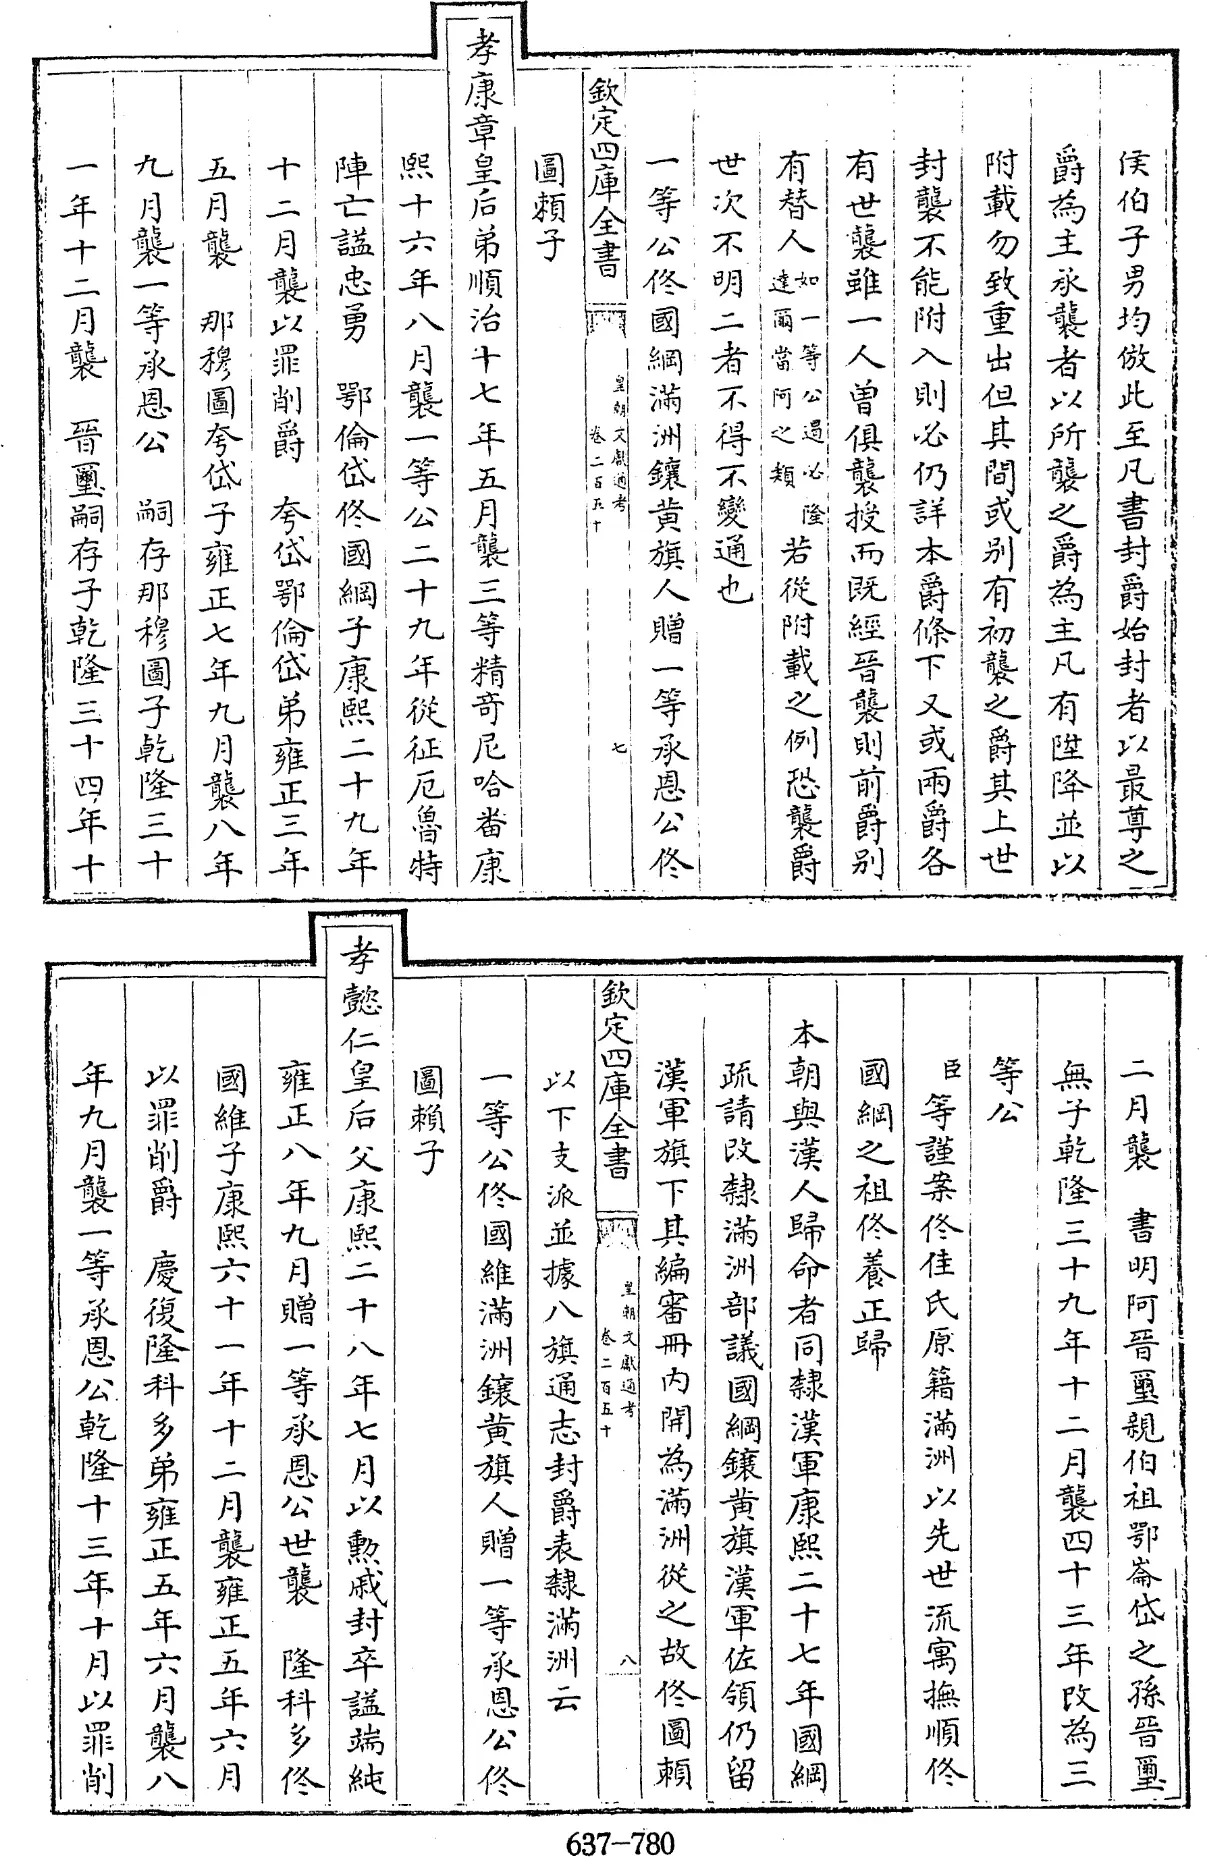 侯伯子男均倣此至凡書封爵始封者以最尊之
爵為主承襲者以所襲之爵為主凡有陞降並以
附載勿致重出但其間或别有初襲之爵其上世
封襲不能附入則必仍詳本爵條下又或兩爵各
有世襲雖一人曾俱襲授而既經晉襲則前爵别
有替人如一等公遏必隆達爾當阿之類若從附載之例恐襲爵
世次不明二者不得不變通也
一等公佟國綱滿洲鑲黄旗人贈一等承恩公佟
欽定四庫全書
皇朝文獻通考
卷二百五十
七
圖賴子
孝康章皇后弟順治十七年五月襲三等精奇尼哈畨康
熙十六年八月襲一等公二十九年從征厄魯特
陣亡諡忠勇 鄂倫岱佟國綱子康熙二十九年
十二月襲以罪削爵 夸岱鄂倫岱弟雍正三年
五月襲 那穆圖夸岱子雍正七年九月襲八年
九月襲一等承恩公 嗣存那穆圖子乾隆三十
一年十二月襲 晉璽嗣存子乾隆三十四年十
二月襲 書明阿晉璽親伯祖鄂崙岱之孫晉璽
無子乾隆三十九年十二月襲四十三年改為三
等公
臣等謹案佟佳氏原籍滿洲以先世流寓撫順佟
國綱之祖佟養正歸
本朝與漢人歸命者同隸漢軍康熙二十七年國綱
疏請改隸滿洲部議國綱鑲黄旗漢軍佐領仍留
漢軍旗下其編審冊内開為滿洲從之故佟圖賴
欽定四庫全書
皇朝文獻通考
卷二百五十
八
以下支派並據八旗通志封爵表隸滿洲云
一等公佟國維滿洲鑲黄旗人贈一等承恩公佟
圖賴子
孝懿仁皇后父康熙二十八年七月以勲戚封卒諡端純
雍正八年九月贈一等承恩公世襲 隆科多佟
國維子康熙六十一年十二月襲雍正五年六月
以罪削爵 慶復隆科多弟雍正五年六月襲八
年九月襲一等承恩公乾隆十三年十月以罪削
637-780